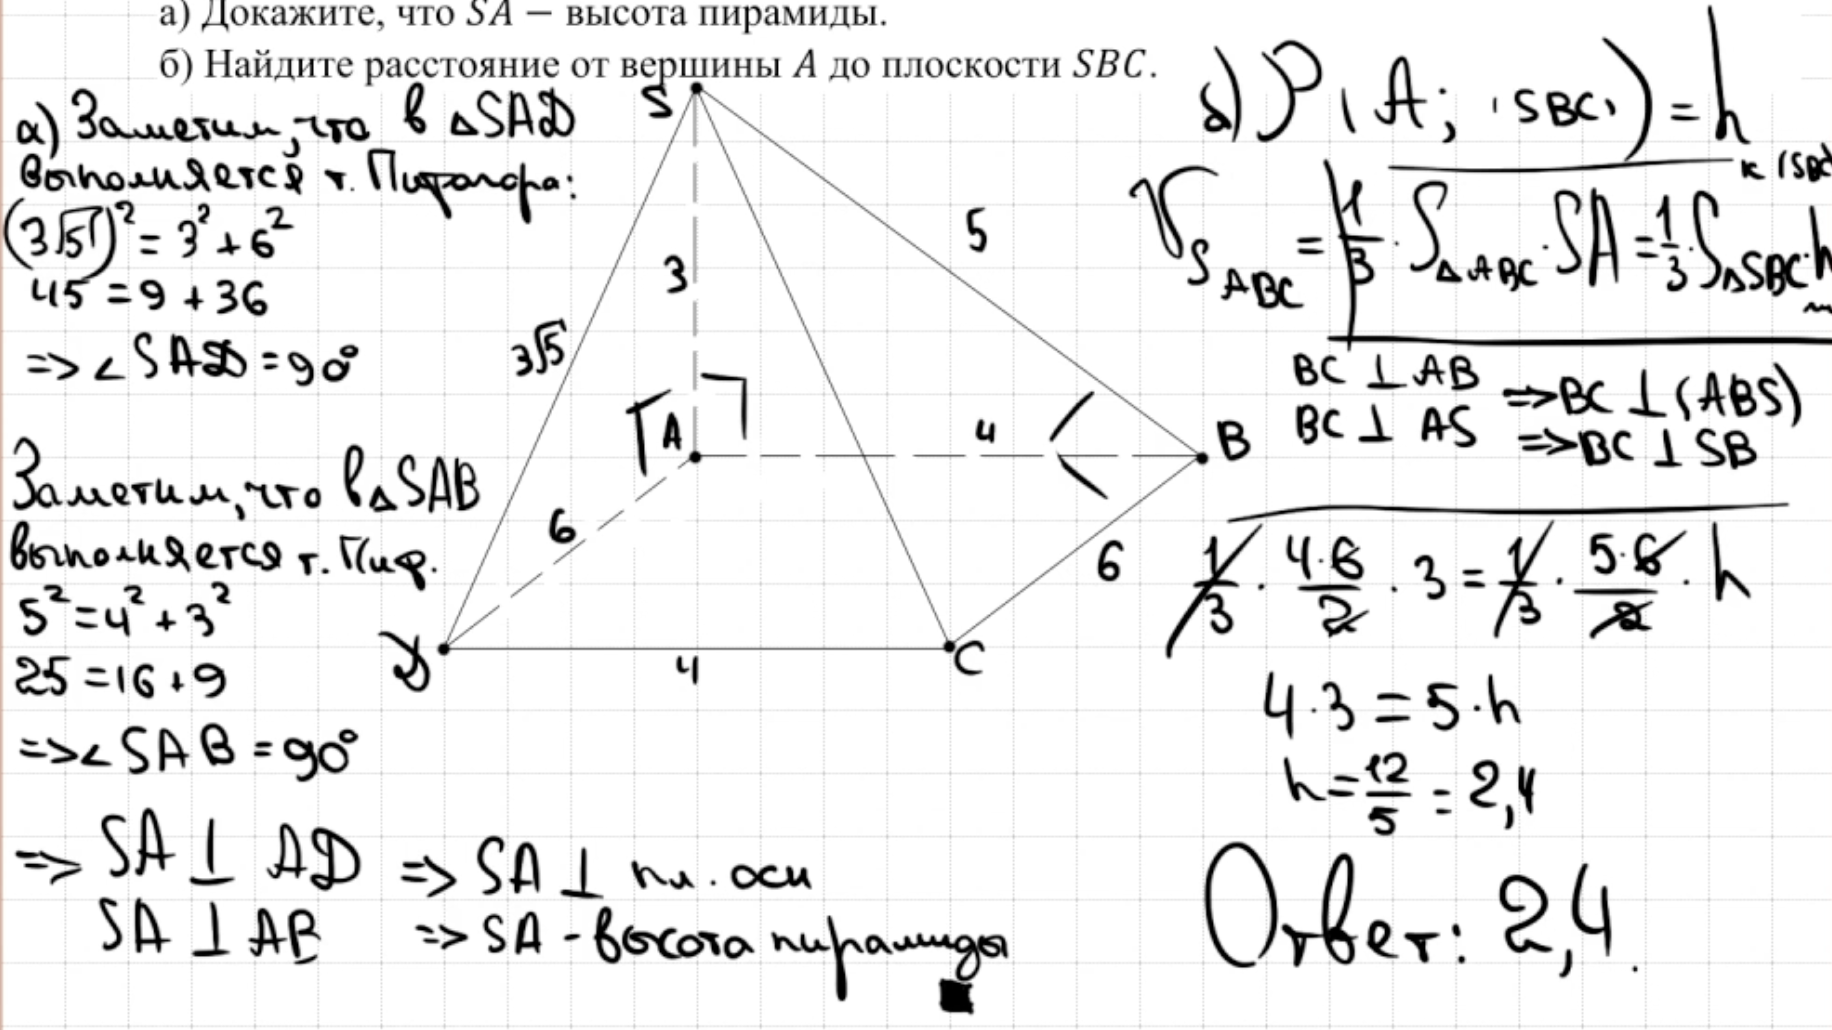 а) Докажите, что SA − высота пирамиды.
б) Найдите расстояние от вершины A до плоскости SBC.
а) Заметим, что в △SAD
выполняется т. Пифагора:
(3√5)² = 3² + 6²
45 = 9 + 36
=> ∠SAD = 90°
Заметим, что в △SAB
выполняется т. Пиф.
5² = 4² + 3²
25 = 16 + 9
=> ∠SAB = 90°
=> SA ⊥ AD => SA ⊥ пл. осн
SA ⊥ AB => SA - высота пирамиды
S
3
5
3√5
A
4
B
6
6
D
4
C
б) ρ(A; (SBC)) = h
к (SBC)
V SABC = 1/3 · S△ABC · SA = 1/3 · S△SBC · h
BC ⊥ AB => BC ⊥ (ABS)
BC ⊥ AS => BC ⊥ SB
1/3 · 4·6/2 · 3 = 1/3 · 5·6/2 · h
4·3 = 5·h
h = 12/5 = 2,4
Ответ: 2,4.